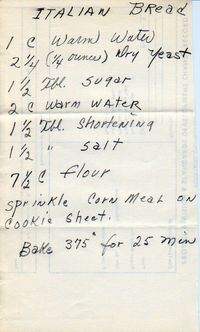 ITALIAN Bread
1 C Warm Water
2 1/4 (1/4 ounces) Dry Yeast
1 1/2 Tbl. Sugar
2 C Warm WATER
1 1/2 Tbl. Shortening
1 1/2 " Salt
7 1/2 C flour
Sprinkle Corn Meal on
Cookie Sheet.
Bake 375° for 25 min